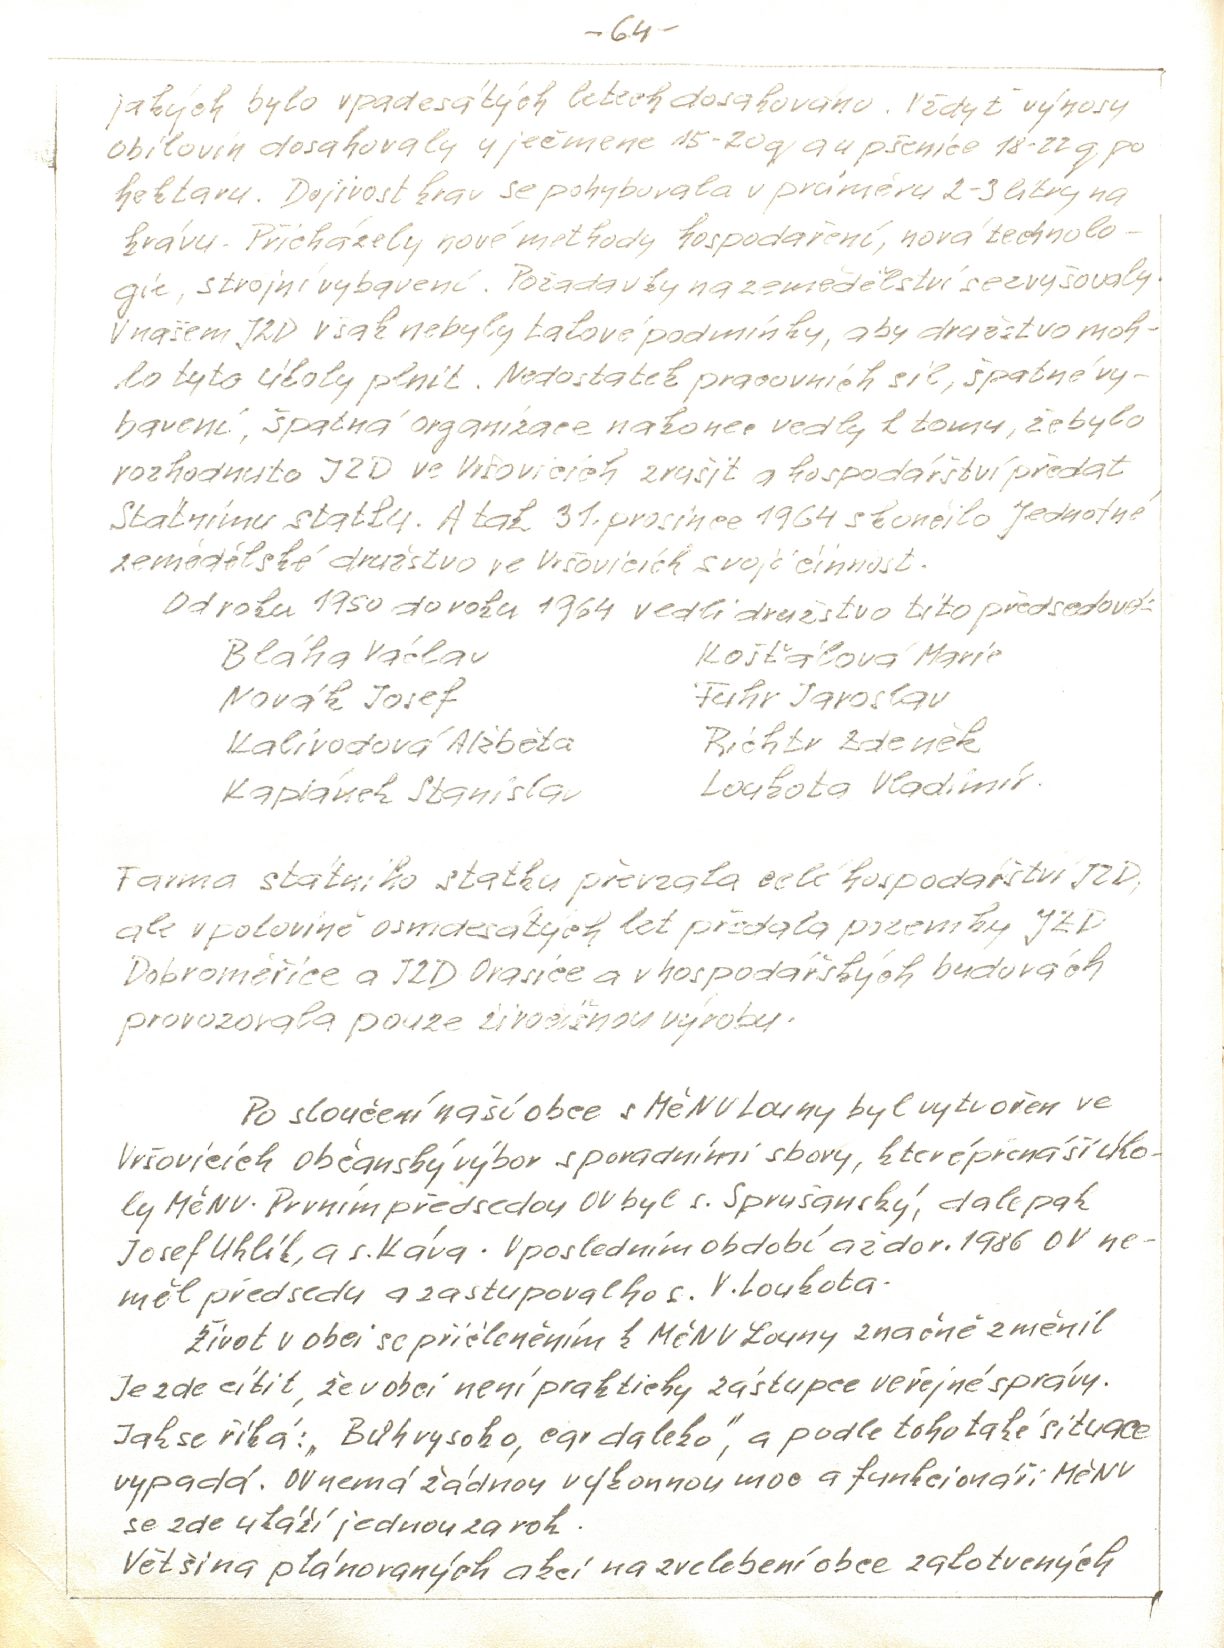 -64-
jakých bylo v padesátých letech dosahováno. Vždyť výnosy
obilovin dosahovaly u ječmene 15-20q a u pšenice 18-22q po
hektaru. Dojivost krav se pohybovala v průměru 2-3 litry na
krávu. Přicházely nové methody hospodaření, nová technolo-
gie, strojní vybavení. Požadavky na zemědělství se zvyšovaly.
V našem JZD však nebyly takové podmínky, aby družstvo moh-
lo tyto úkoly plnit. Nedostatek pracovních sil, špatné vy-
bavení, špatná organizace nakonec vedly k tomu, že bylo
rozhodnuto JZD ve Vršovicích zrušit a hospodářství předat
Státnímu statku. A tak 31. prosince 1964 skončilo Jednotné
zemědělské družstvo ve Vršovicích svoji činnost.
Od roku 1950 do roku 1964 vedli družstvo tito předsedové:
Bláha Václav Košťálová Marie
Novák Josef Fuhr Jaroslav
Kalivodová Alžběta Richtr Zdeněk
Kaplánek Stanislav Loukota Vladimír.
Farma státního statku převzala celé hospodářství JZD,
ale v polovině osmdesátých let předala pozemky JZD
Dobroměřice a JZD Orasice a v hospodářských budovách
provozovala pouze živočišnou výrobu.
Po sloučení naší obce s MěNV Louny byl vytvořen ve
Vršovicích Občanský výbor s poradními sbory, které přenáší úko-
ly MěNV. Prvním předsedou OV byl s. Sprušanský, dále pak
Josef Uhlík, a s. Káva. V posledním období až do r. 1986 OV ne-
měl předsedu a zastupoval ho s. V. Loukota.
Život v obci se přičleněním k MěNV Louny značně změnil
Je zde cítit, že v obci není prakticky zástupce veřejné správy.
Jak se říká: „Bůh vysoko, car daleko", a podle toho také situace
vypadá. OV nemá žádnou výkonnou moc a funkcionáři MěNV
se zde ukáží jednou za rok.
Většina plánovaných akcí na zvelebení obce zakotvených